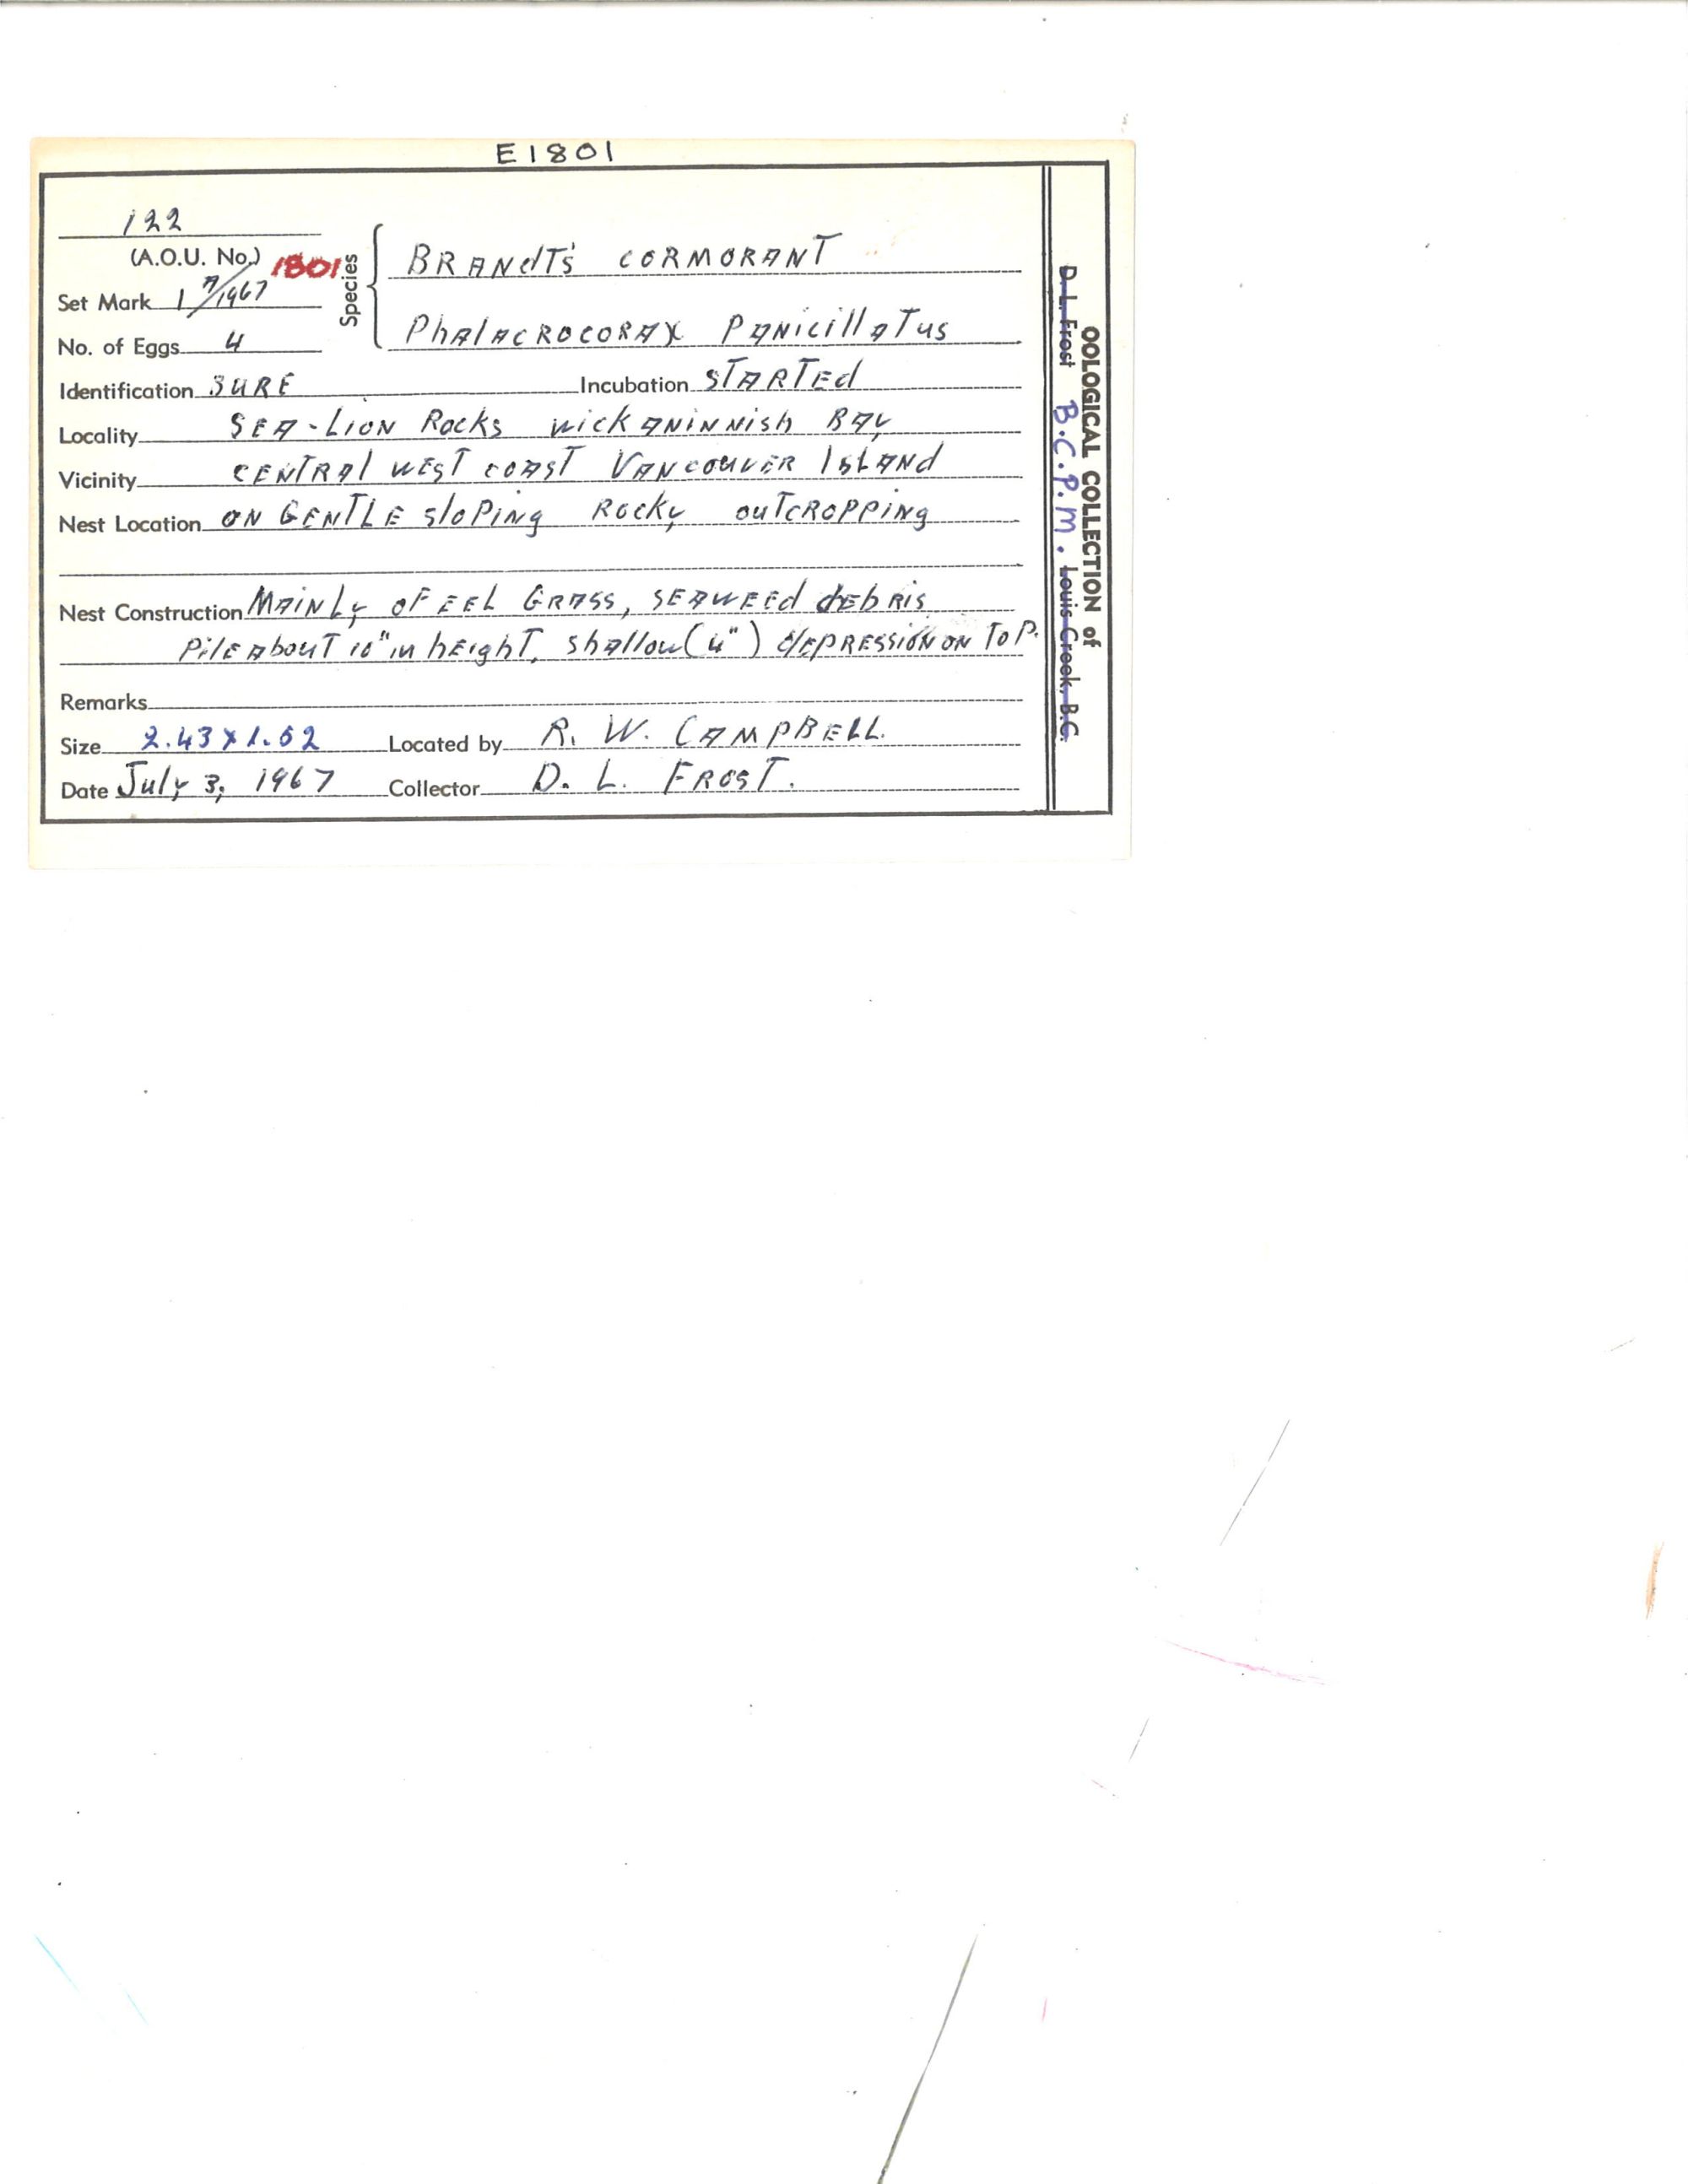 E1801
122
(A.O.U. No.) 1801
Set Mark 1 A/1967
No. of Eggs 4
Species
BRANdT's CORMORANT
PhALACROCORAX PANicillATus
Identification SURE Incubation STARTEd
Locality SEA-LION Rocks wickANINNish BAy
Vicinity CENTRAl WEST COAST VANCOUVER ISLANd
Nest Location ON GENTLE sloPiNg Rocky outCROPPiNg
Nest Construction MAiNLy OF EEL GRASS, SEAWEEd dEbRis
PilE About 10" iN hEight, shAllow (4") dEPRESSiON ON TOP.
Remarks
Size 2.43 x 1.52 Located by R. W. CAMPBELL.
Date July 3, 1967 Collector D. L. FROST.
OOLOGICAL COLLECTION of
D. L. Frost B.C.P.M. Louis Creek, B.C.